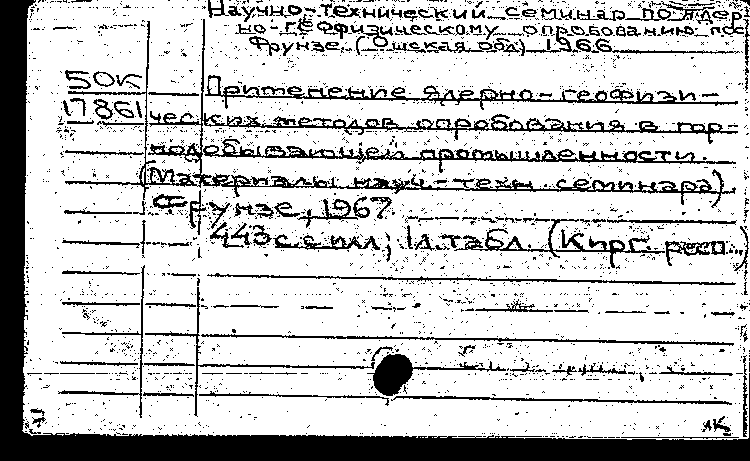 Научно-технический семинар по ядер-
но-геофизическому опробованию пос
Фрунзе (Ошская обл) 1966
50К Применение ядерно-геофизи-
17861 ческих методов опробования в гор-
нодобывающей промышленности.
(Материалы науч.-техн. семинара).
Фрунзе, 1967
443с. с илл; 1л. табл. (Кирг. респ..,)